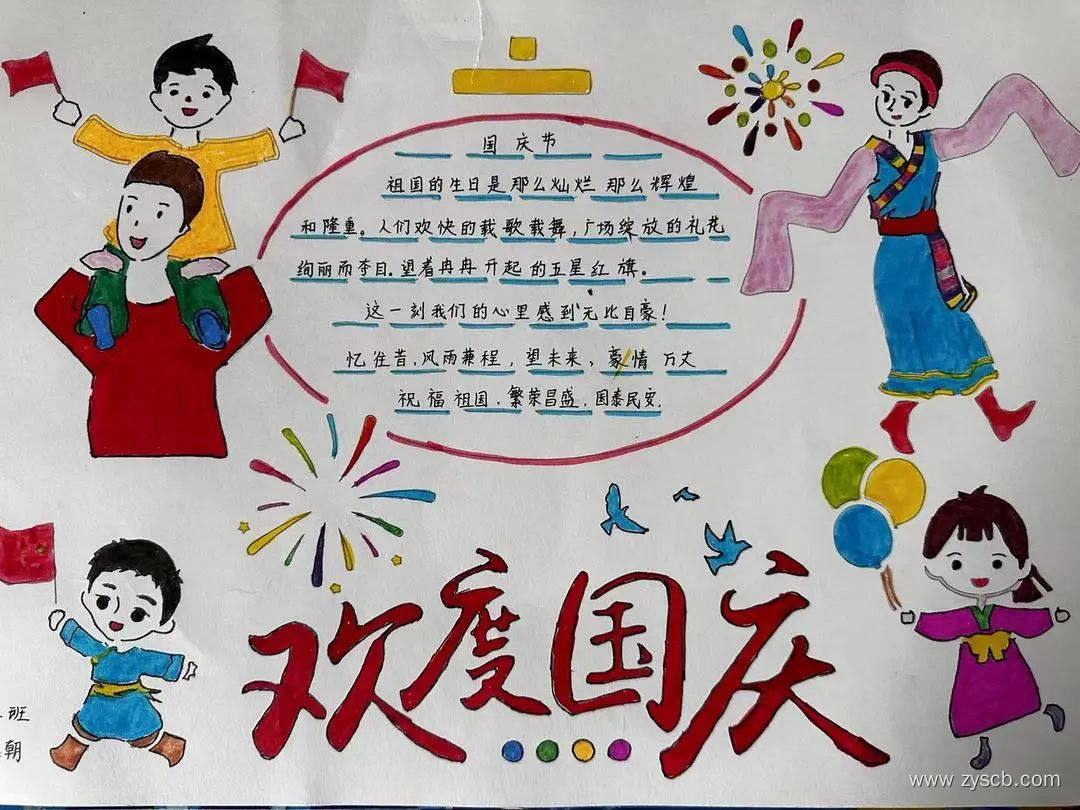 国庆节
祖国的生日是那么灿烂那么辉煌
和隆重。人们欢快的载歌载舞,广场绽放的礼花
绚丽而夺目.望着冉冉升起的五星红旗。
这一刻我们的心里感到无比自豪!
忆往昔,风雨兼程,望未来、豪情万丈
祝福祖国、繁荣昌盛.国泰民安.
欢度国庆
班
朝
www.zyscb.com